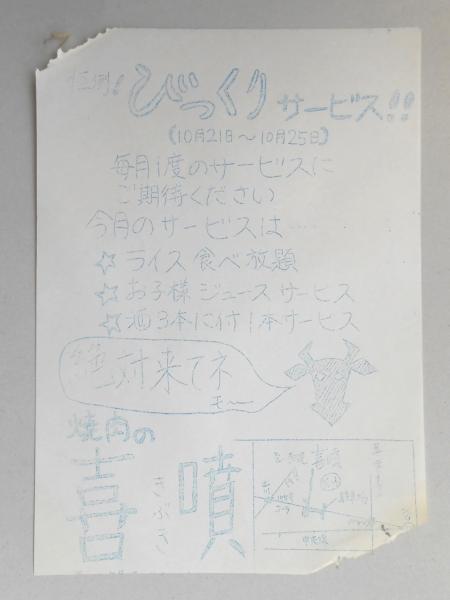 恒例! びっくりサービス!!
(10月21日～10月25日)
毎月1度のサービスに
ご期待ください
今月のサービスは……
☆ライス食べ放題
☆お子様ジュースサービス
☆酒3本に付1本サービス
絶対来てネ
モ～～
焼肉の
喜噴
きぶき